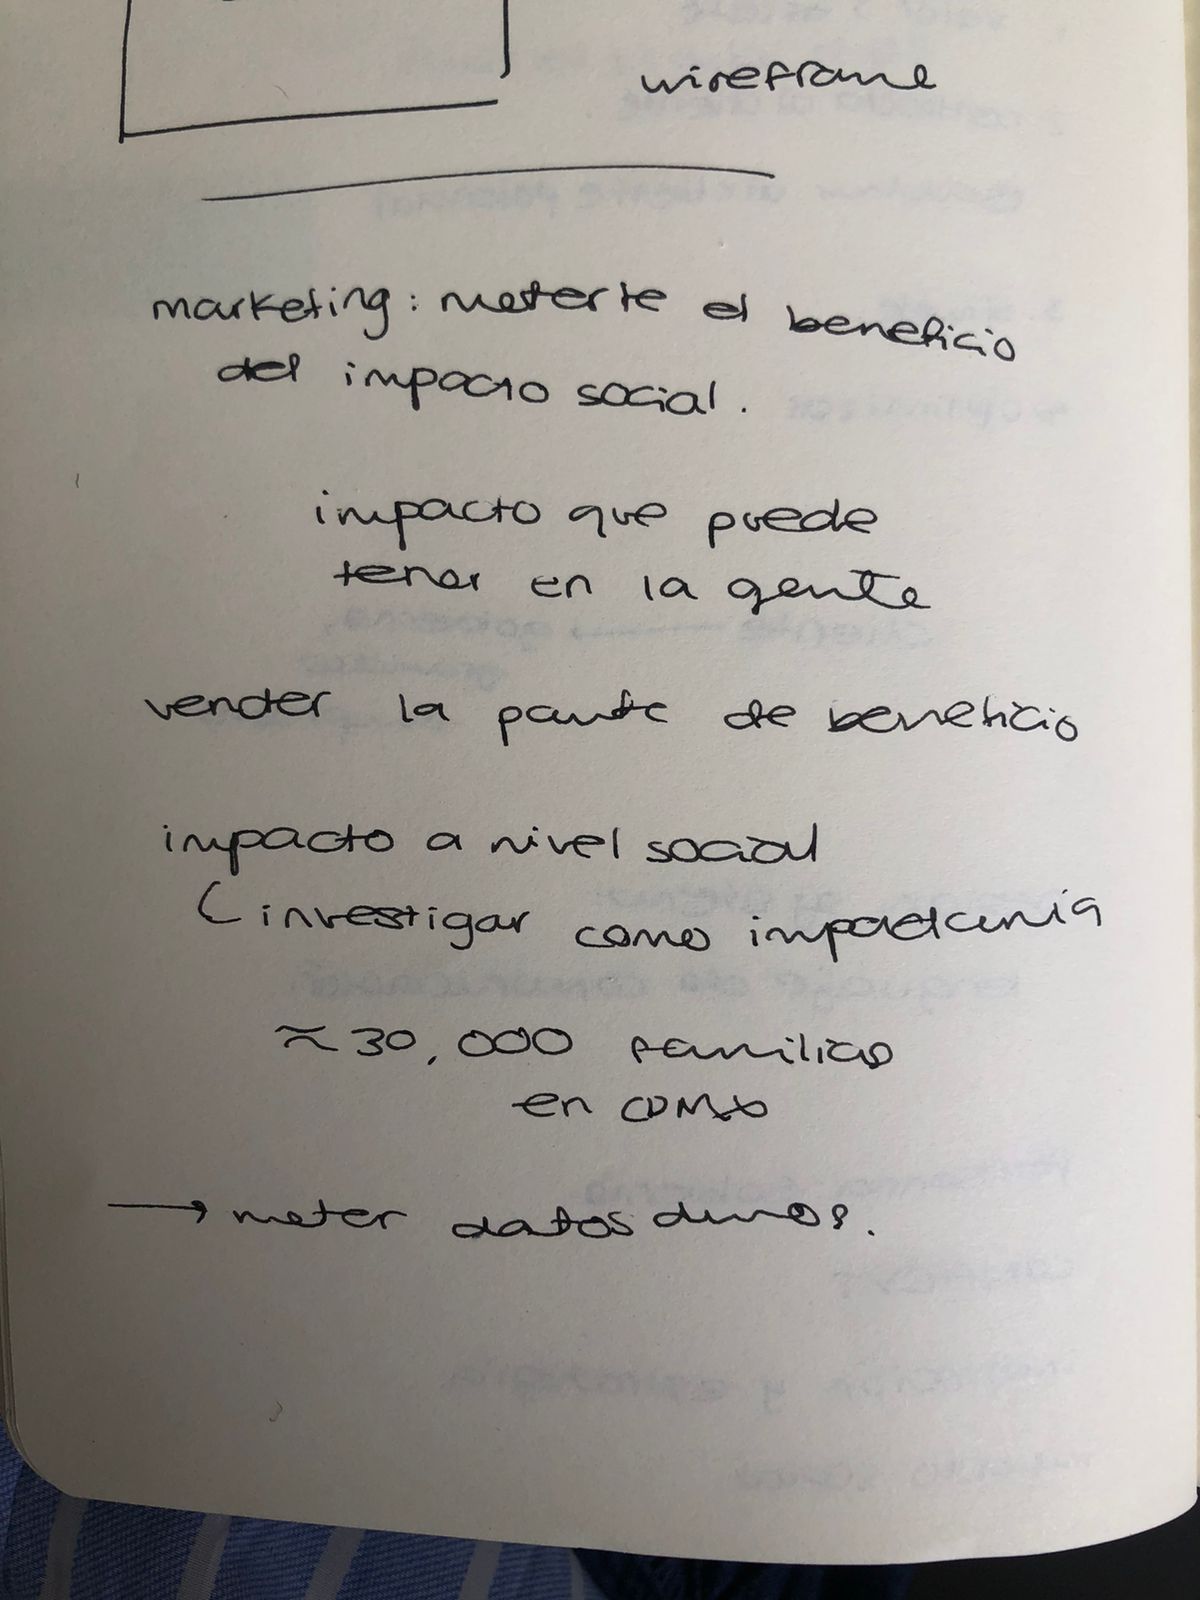 wireframe
marketing: meterle el beneficio
del impacto social.
impacto que puede
tener en la gente
vender la parte de beneficio
impacto a nivel social
(investigar como impactaria
≈ 30,000 familias
en CDMX
→ meter datos duros.